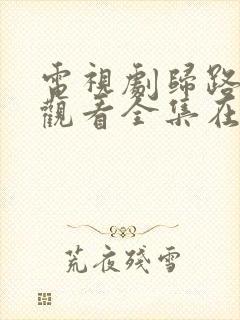 電視劇歸路
觀看全集在
荒夜殘雪